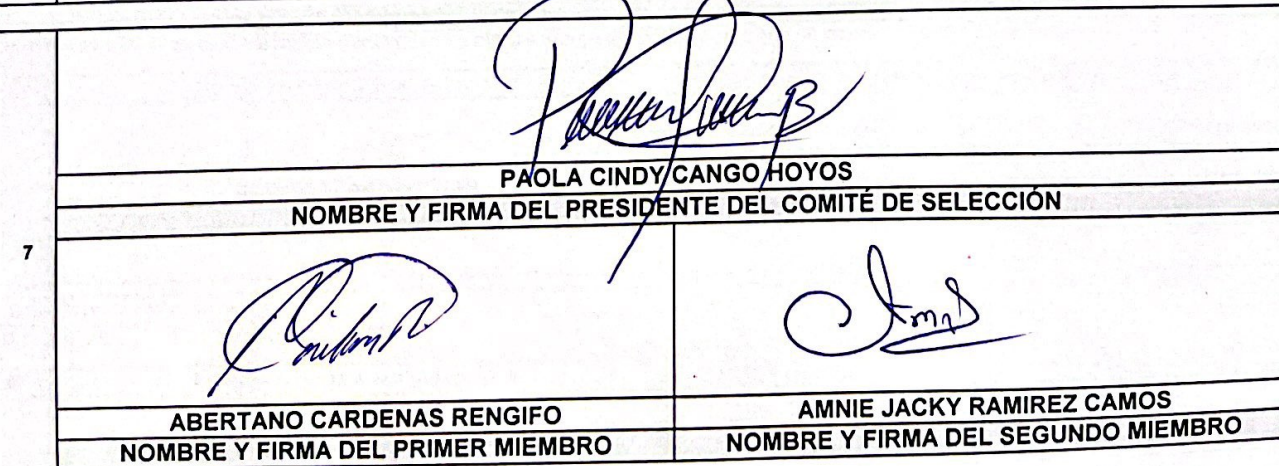 PAOLA CINDY CANGO HOYOS
NOMBRE Y FIRMA DEL PRESIDENTE DEL COMITÉ DE SELECCIÓN
7
ABERTANO CARDENAS RENGIFO
NOMBRE Y FIRMA DEL PRIMER MIEMBRO
AMNIE JACKY RAMIREZ CAMOS
NOMBRE Y FIRMA DEL SEGUNDO MIEMBRO